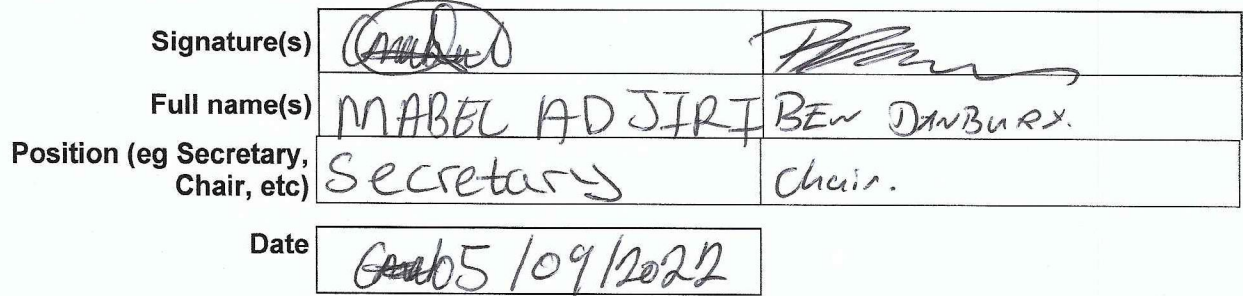 Signature(s)
Full name(s) MABEL ADJIRI BEN DANBURY.
Position (eg Secretary,
Chair, etc) Secretary Chair.
Date 05/09/2022